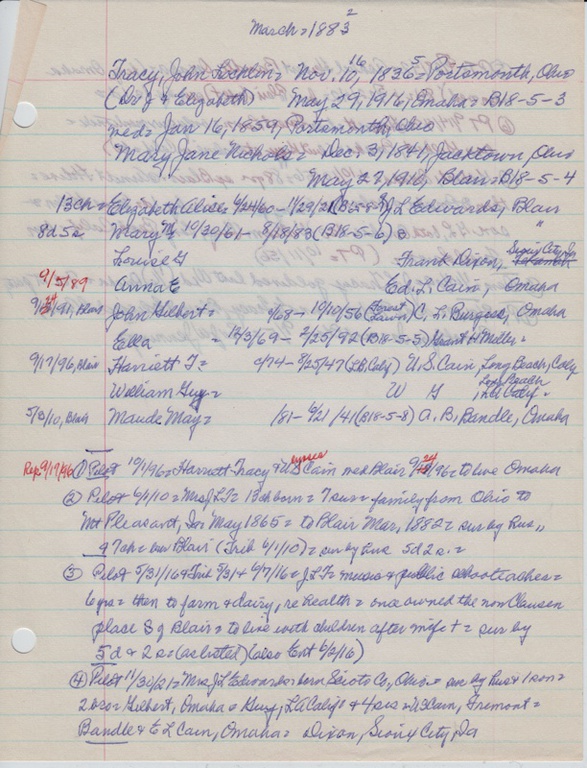 March = 1883 2
Tracy, John Locklin = Nov. 10, 16 1836 5 = Portsmouth, Ohio
(Dr J & Elizabeth) May 29, 1916, Omaha = B18-5-3
med = Jan 16, 1859, Portsmouth, Ohio
Mary Jane Nichols = Dec. 31, 1841, Jacktown, Ohio
May 27, 1910, Blair = B18-5-4
13 ch = Elizabeth Alice 4/24/60 - 11/29/21 (B18-5-7) J L Edwards, Blair
8d 5s Mary 10/30/61 - 8/18/83 (B18-5-6) "
Louise G Frank Dixon, Sioux City, Ia
9/5/89 Anna E Ed. L. Cain, Omaha
91, Blair John Gilbert = /68 - 10/10/56 (Forest Lawn) C. L. Burgess, Omaha
Ella = 12/3/69 - 2/25/92 (B18-5-5) Grant H Miller =
9/17/96, Blair Harriett T = /74 - 8/25/47 (LB, Caly) U.S. Cain, Long Beach, Caly
William Guy = W G , Long Beach LA Calif.
5/3/10, Blair Maude May = /81 - 6/21/41 (B18-5-8) A. B. Bandle, Omaha
Rep 9/17/96 ① Pilot 10/1/96 = Harriett Tracy & U S Ulysses Cain med Blair 9/24/96 = to live Omaha
② Pilot 6/1/10 = Mrs J L T = 13 ch born = 7 sur = family from Ohio to
Mt Pleasant, Ia May 1865 = to Blair Mar, 1882 = sur by hus,
& 7 ch = bur Blair (Trib 6/1/10) = sur by hus 5d 2s. =
③ Pilot 5/31/16 & Trib 5/31 & 6/7/16 = J L T = music & public school teacher =
6 yrs = then to farm & dairy, re health = once owned the now Clausen
place S of Blair = to live with children after wife + = sur by
5d & 2s = (as listed) (also Ent 6/2/16)
④ Pilot 11/30/21 = Mrs J L Edwards = born Scioto Co, Ohio = sur by hus & 1 son =
2 bros Gilbert, Omaha & Guy, LA Calif & 4 sis = US Cain, Fremont =
Bandle & E L Cain, Omaha = Dixon, Sioux City, Ia